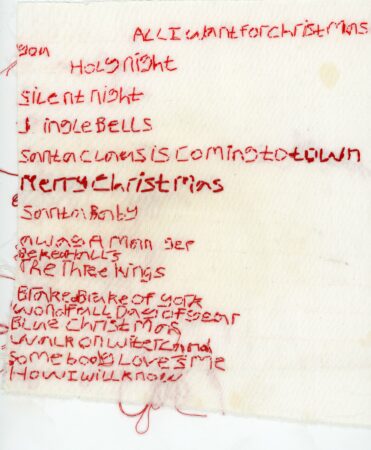 ALL I want for christmas
you
HOLY night
Silent night
JingleBELLS
santa claus is coming to town
Merry christmas
Santa Baby
away A Man ger
DeKeHALLS
The Three Kings
Brake Brake of york
wondfall Day of year
BLue christmas
walk on witer
somebody Loves Me
HOW I will know